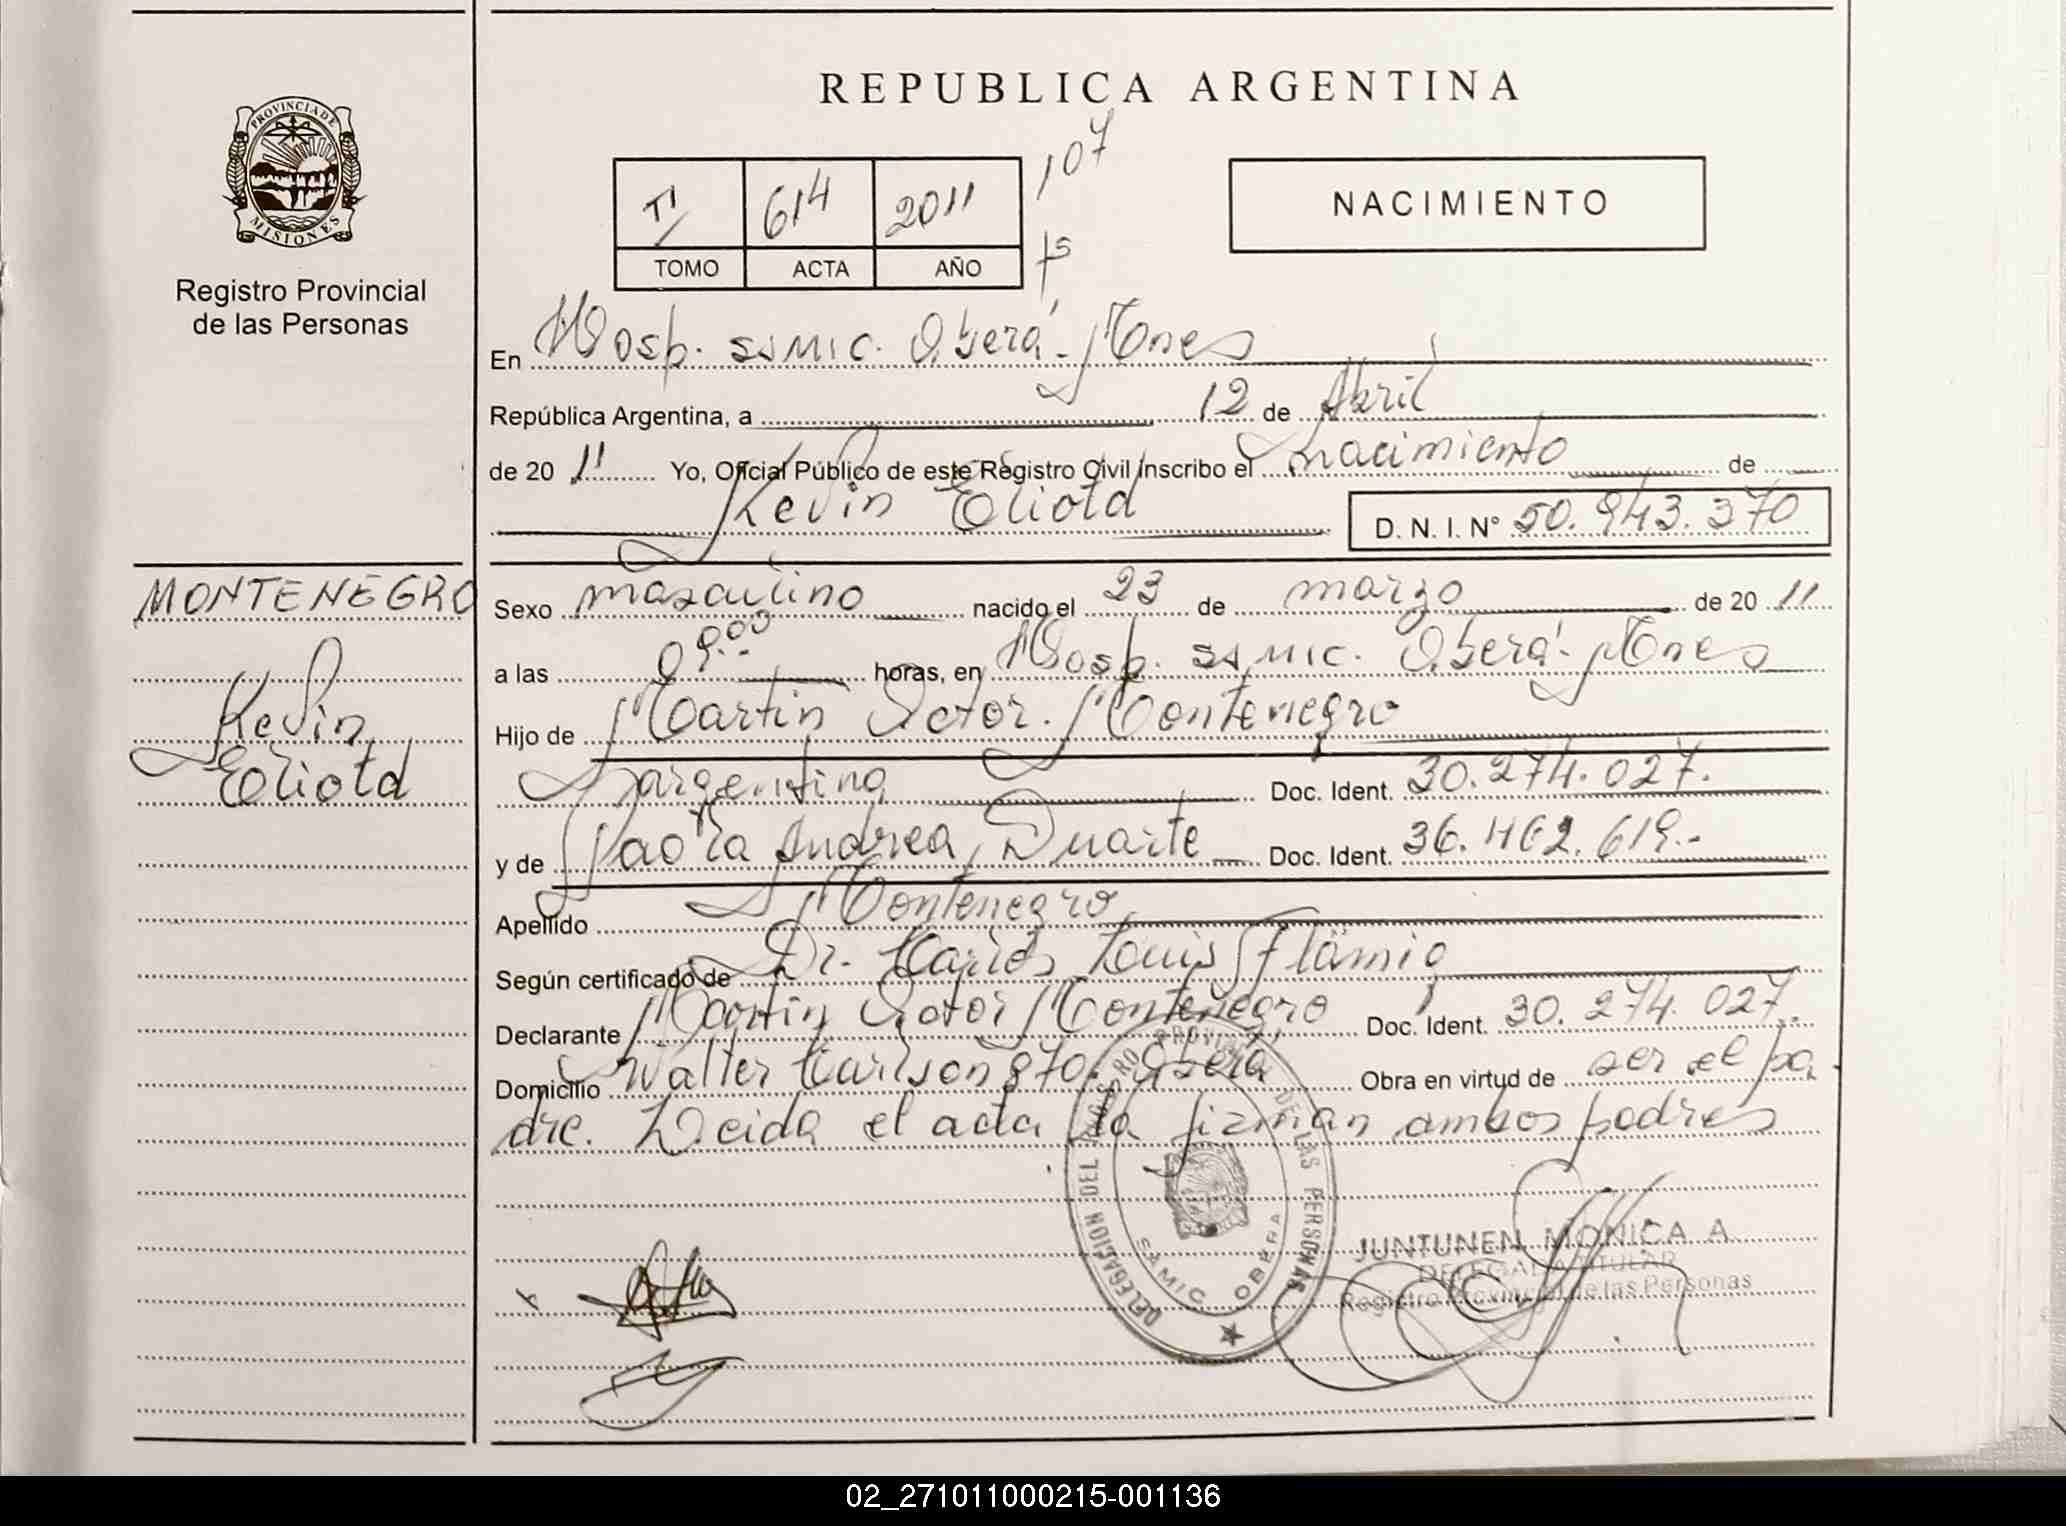 PROVINCIA DE
MISIONES
Registro Provincial
de las Personas
REPUBLICA ARGENTINA
T1 614 2011 107
TOMO ACTA AÑO
NACIMIENTO
En Hosp. SAMIC. Oberá - Mnes
República Argentina, a 12 de Abril
de 20 11 Yo, Oficial Público de este Registro Civil inscribo el nacimiento de
Kevin Eliotd D. N. I. N° 50.943.370
MONTENEGRO
Kevin
Eliotd
Sexo masculino nacido el 23 de marzo de 20 11
a las 09:00 horas, en Hosp. SAMIC. Oberá - Mnes
Hijo de Martin Victor Montenegro
argentino Doc. Ident. 30.274.027.
y de Paola Andrea Duarte Doc. Ident. 36.462.619.-
Apellido Montenegro
Según certificado de Dr. Carlos Luis Flämig
Declarante Martin Victor Montenegro Doc. Ident. 30.274.027.
Domicilio Walter Carlson 870. Oberá Obra en virtud de ser el pa
dre. Leida el acta la firman ambos padres
DELEGACION DEL REGISTRO PROVINCIAL DE LAS PERSONAS
SAMIC OBERA
JUNTUNEN MONICA A.
DELEGADA TITULAR
Registro Provincial de las Personas
02_271011000215-001136